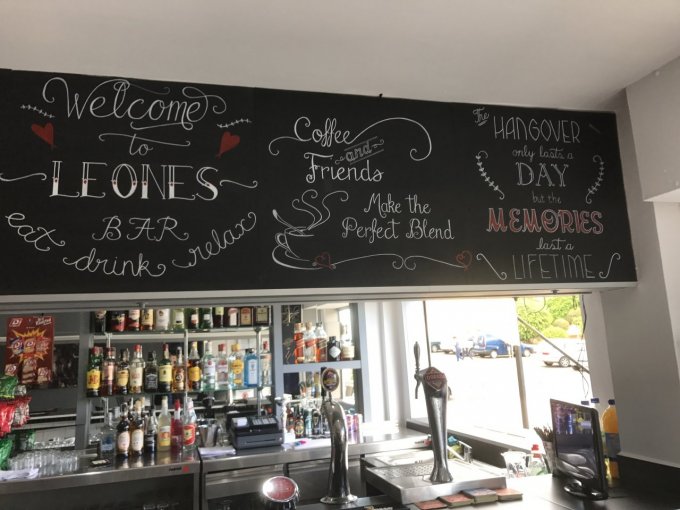 Welcome
to
LEONES
BAR
eat drink relax
Coffee
and
Friends
Make the
Perfect Blend
The
HANGOVER
only lasts a
DAY
but the
MEMORIES
last a
LIFETIME